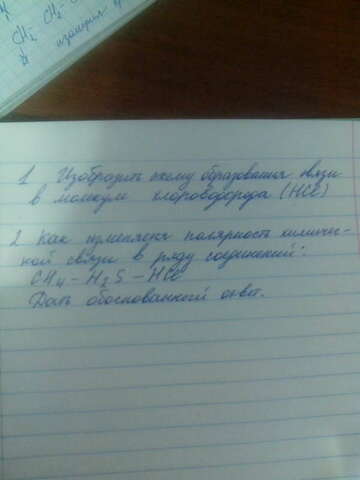 CH₂ CH₂-
изомерия
1 Изобразить схему образования связи
в молекуле хлороводорода (HCl)
2 Как изменяется полярность химичес-
кой связи в ряду соединений:
CH₄ - H₂S - HCl
Дать обоснованный ответ.